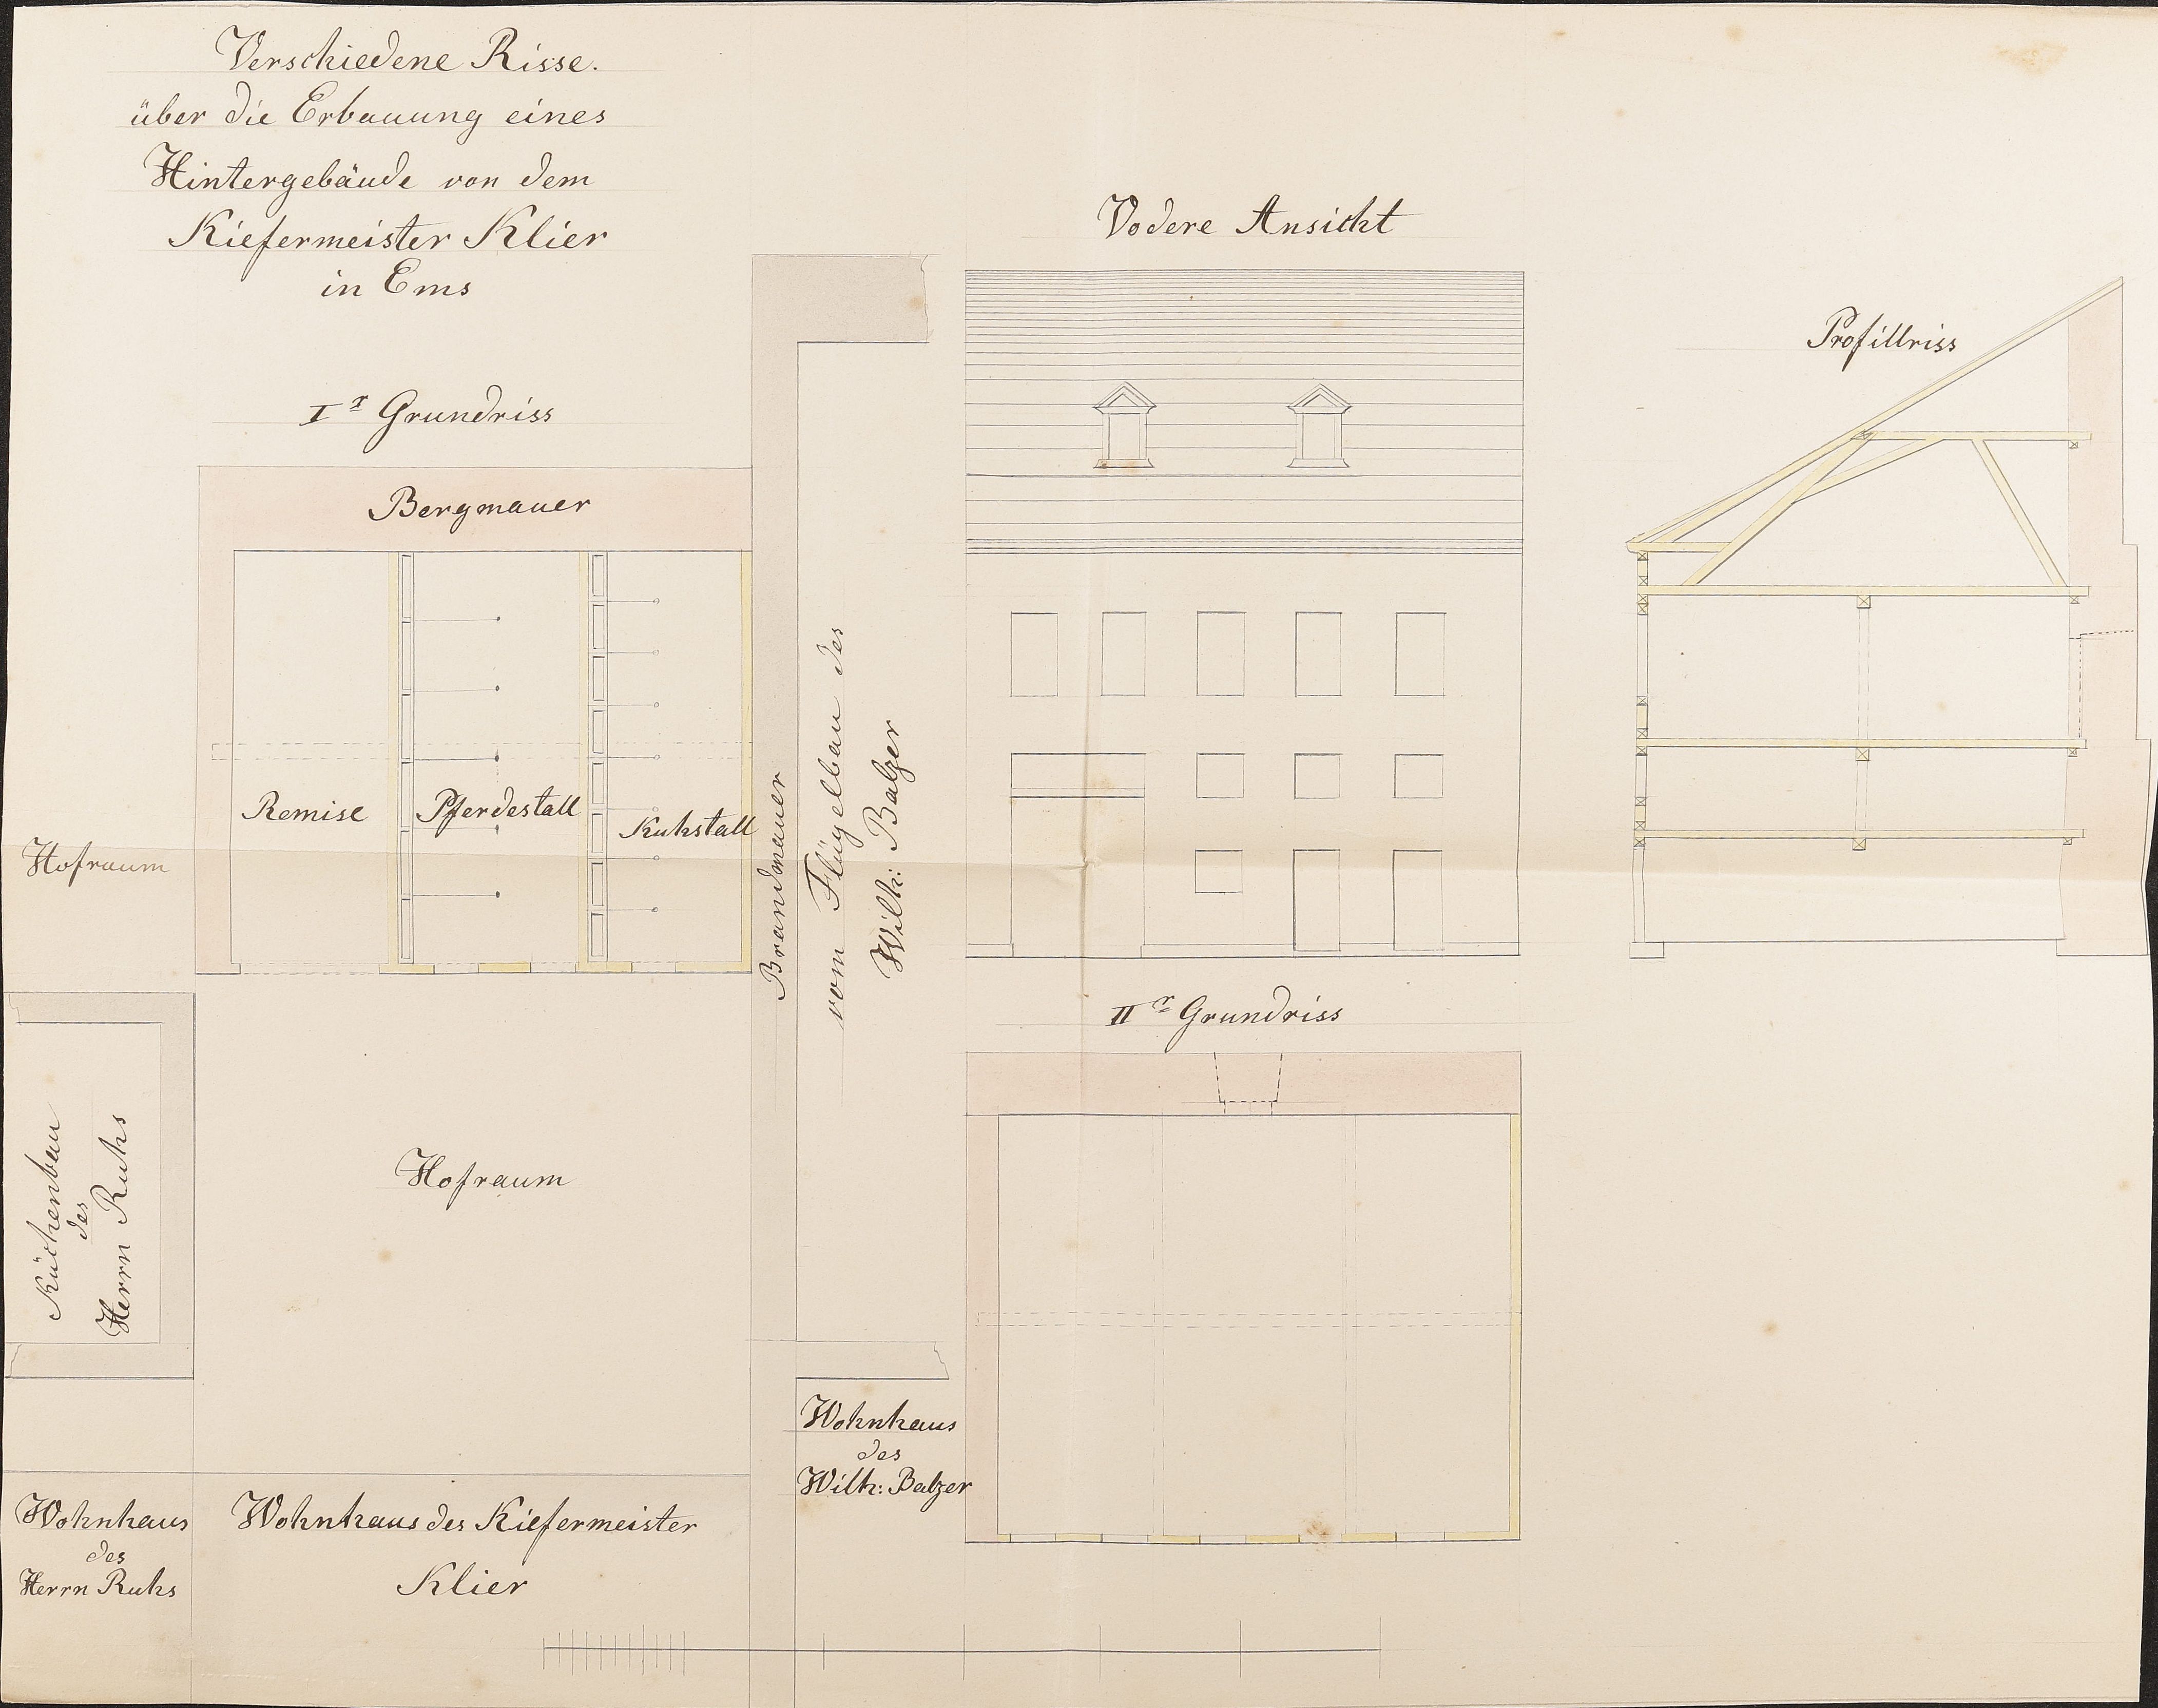 Verschiedene Risse.
über die Erbauung eines
Hintergebäude von dem
Kiefermeister Klier
in Ems
Ir Grundriss
Bergmauer
Remise
Pferdestall
Kuhstall
Hofraum
Brandmauer
vom Flügelbau des
Wilh: Balzer
Vodere Ansicht
Profillriss
IIr Grundriss
Küchenbau
des
Herrn Ruhs
Hofraum
Wohnhaus
des
Wilh: Balzer
Wohnhaus
des
Herrn Ruhs
Wohnhaus des Kiefermeister
Klier